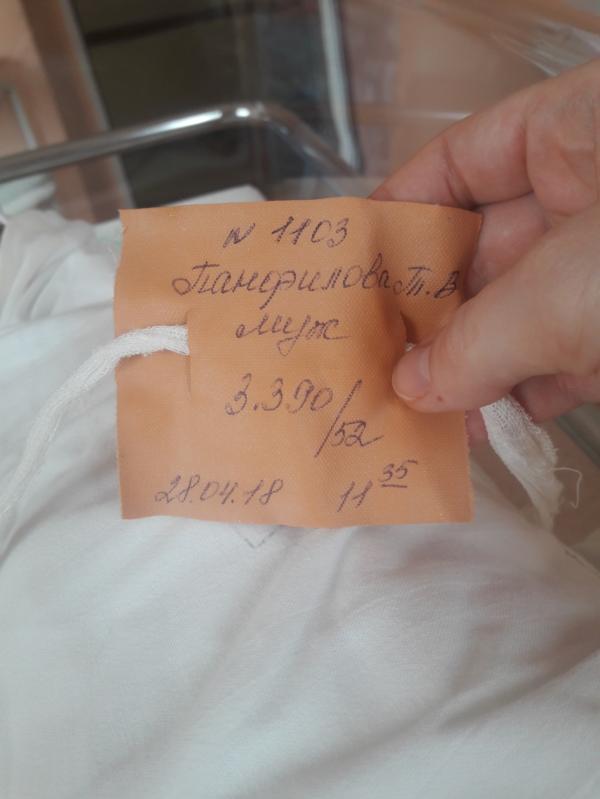 N 1103
Панфилова Т. В
муж
3.390/52
28.04.18 11 35